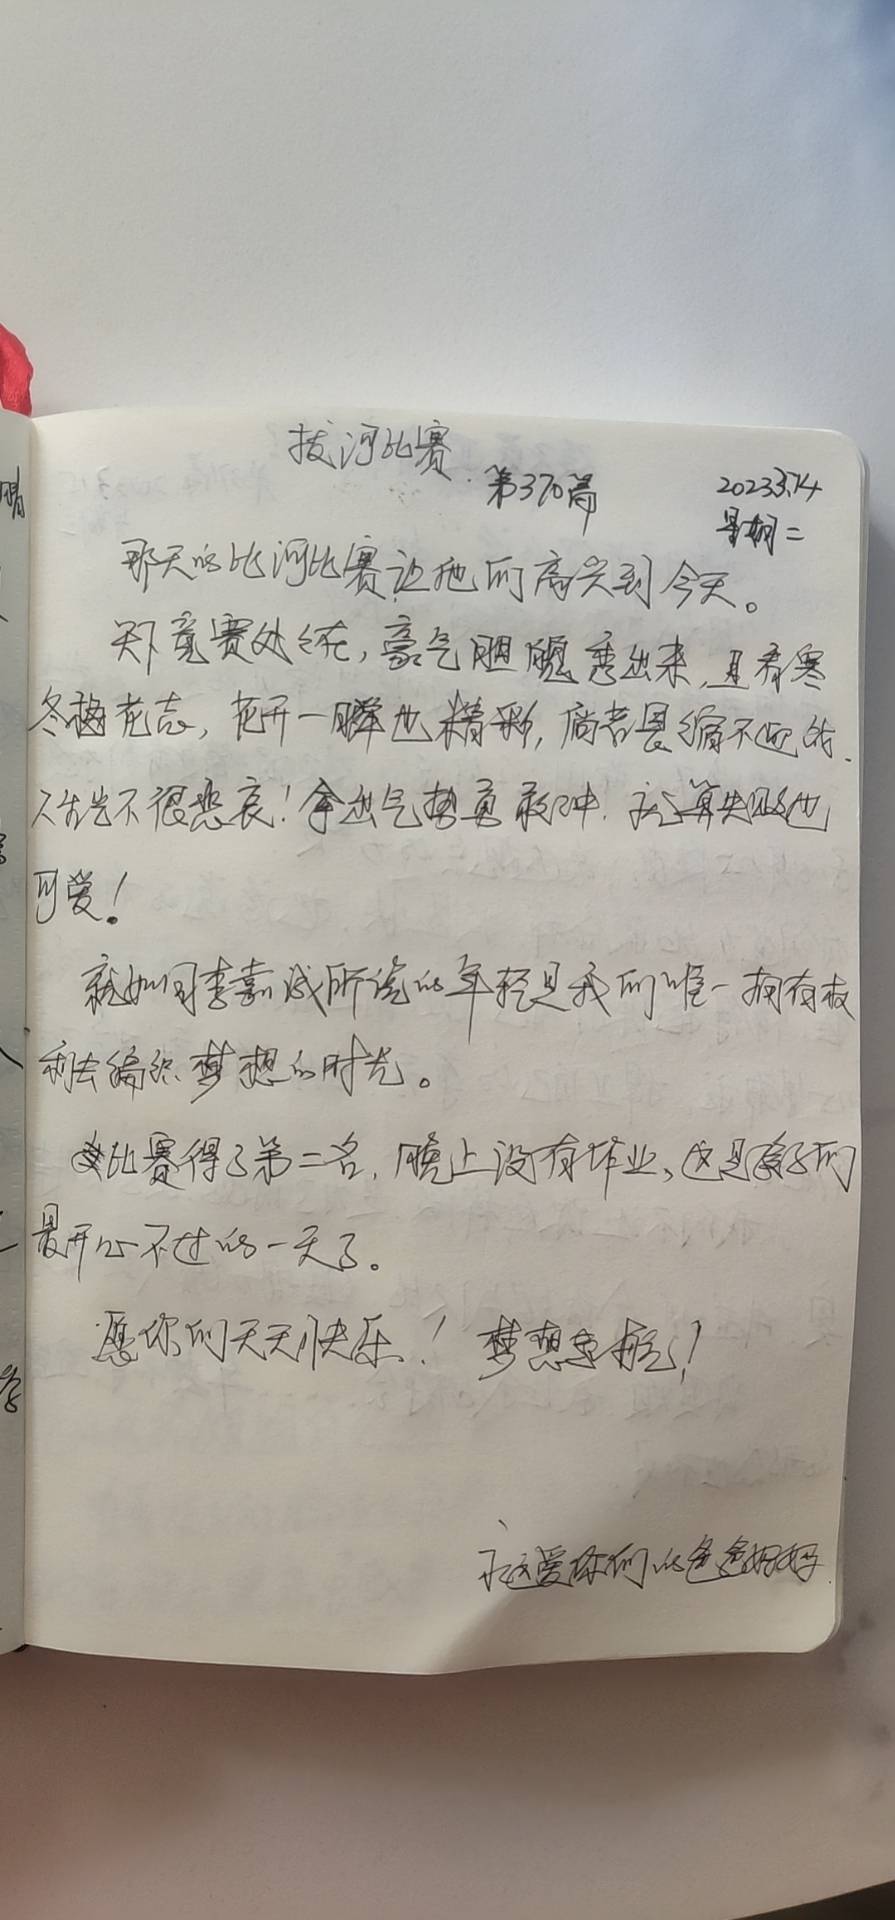 拔河比赛
第370篇
2023.3.14
星期二
那天的比河比赛让他们高兴到今天。
天下竟赛处处在,豪气胆魄秀出来,且看寒
冬梅花志,花开一瞬也精彩,倘若畏缩不迎战
人生岂不很悲哀!拿出气势勇敢冲.就算失败也
可爱!
就如同李嘉诚所说的年轻是我们唯一拥有权
利去编织梦想的时光。
比赛得了第二名,晚上没有作业,这是孩子们
最开心不过的一天了。
愿你们天天快乐!梦想起航!
永远爱你们的爸爸妈妈
晴